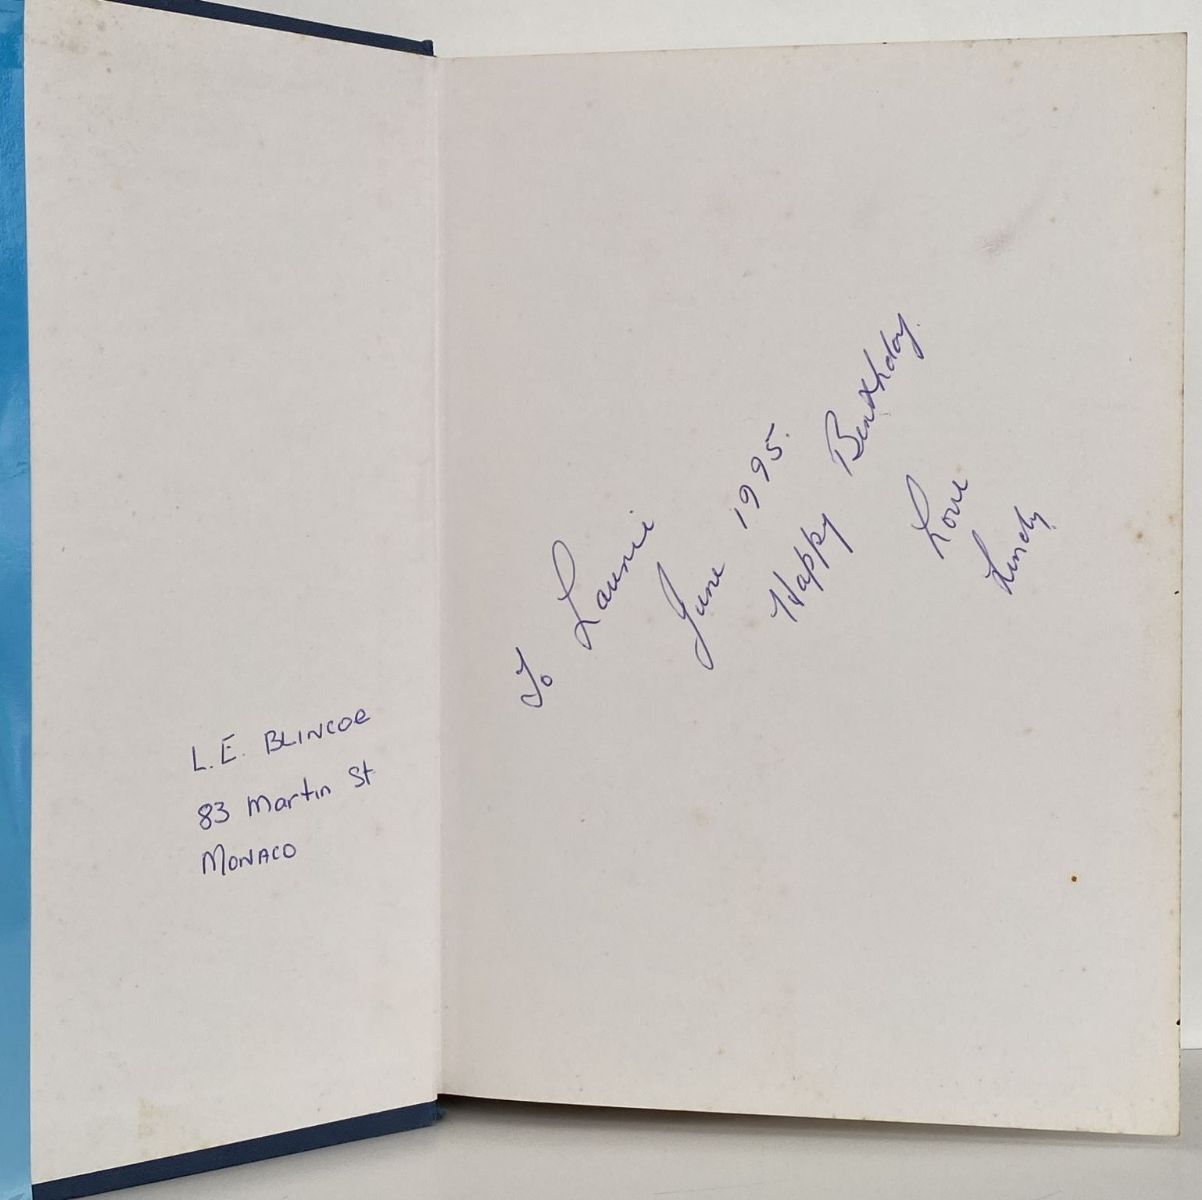 L.E. BLINCOE
83 Martin St
MONACO
To Laurie
June 1995.
Happy Birthday.
Love
Lindy